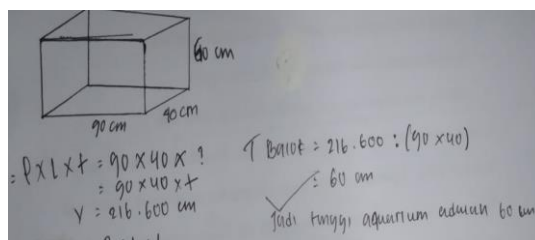 60 cm
40 cm
90 cm
= P x L x t = 90 x 40 x ?
= 90 x 40 x t
V = 216.600 cm
T Balok = 216.600 : (90 x 40)
= 60 cm
Jadi tinggi aquarium adalah 60 cm